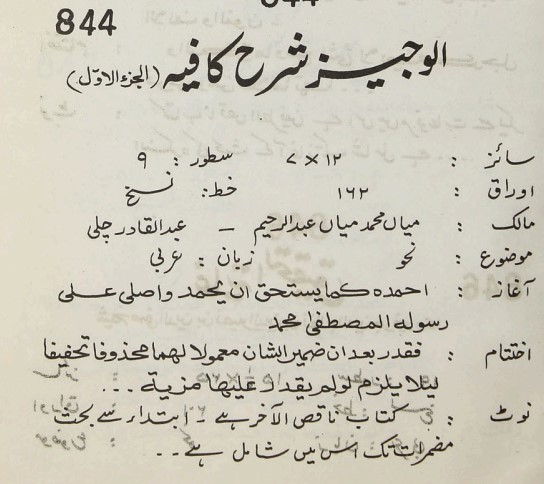 844
الوجیز شرح کافیہ (الجزء الاوّل)
سائز : ۱۲ × ۷ سطور : ۹
اوراق : ۱۶۲ خط : نسخ
مالک : میاں محمد میاں عبدالرحیم – عبدالقادر چلی
موضوع : نحو زبان : عربی
آغاز : احمدہ کما یستحق ان یحمد واصلی علی
رسولہ المصطفیٰ محمد
اختتام : فقدر بعد ان ضمیر الشان معمولا لهما محذوفا تخفیفا
لیلا یلزم لو لم یقدار علیها مزیة ...
نوٹ : کتاب ناقص الآخر ہے - ابتداء سے بحث
مضمرات تک اس میں شامل ہے - -